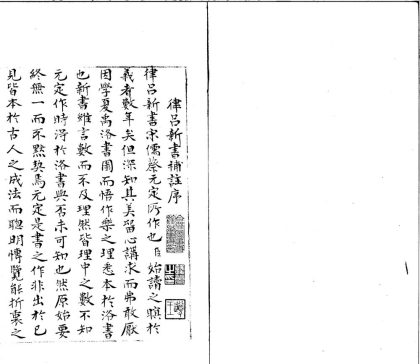 律呂新書補註序
律呂新書宋儒蔡元定所作也臣始讀之瞋於
義者數年矣但深知其美留心講求而弗敢厭
因學夏禹洛書圖而悟作樂之理悉本於洛書
也新書雖言數而不及理然皆理中之數不知
元定作時得於洛書與否未可知也然原始要
終無一而不黙契焉元定是書之作非出於已
見皆本於古人之成法而聰明博覽能折衷之